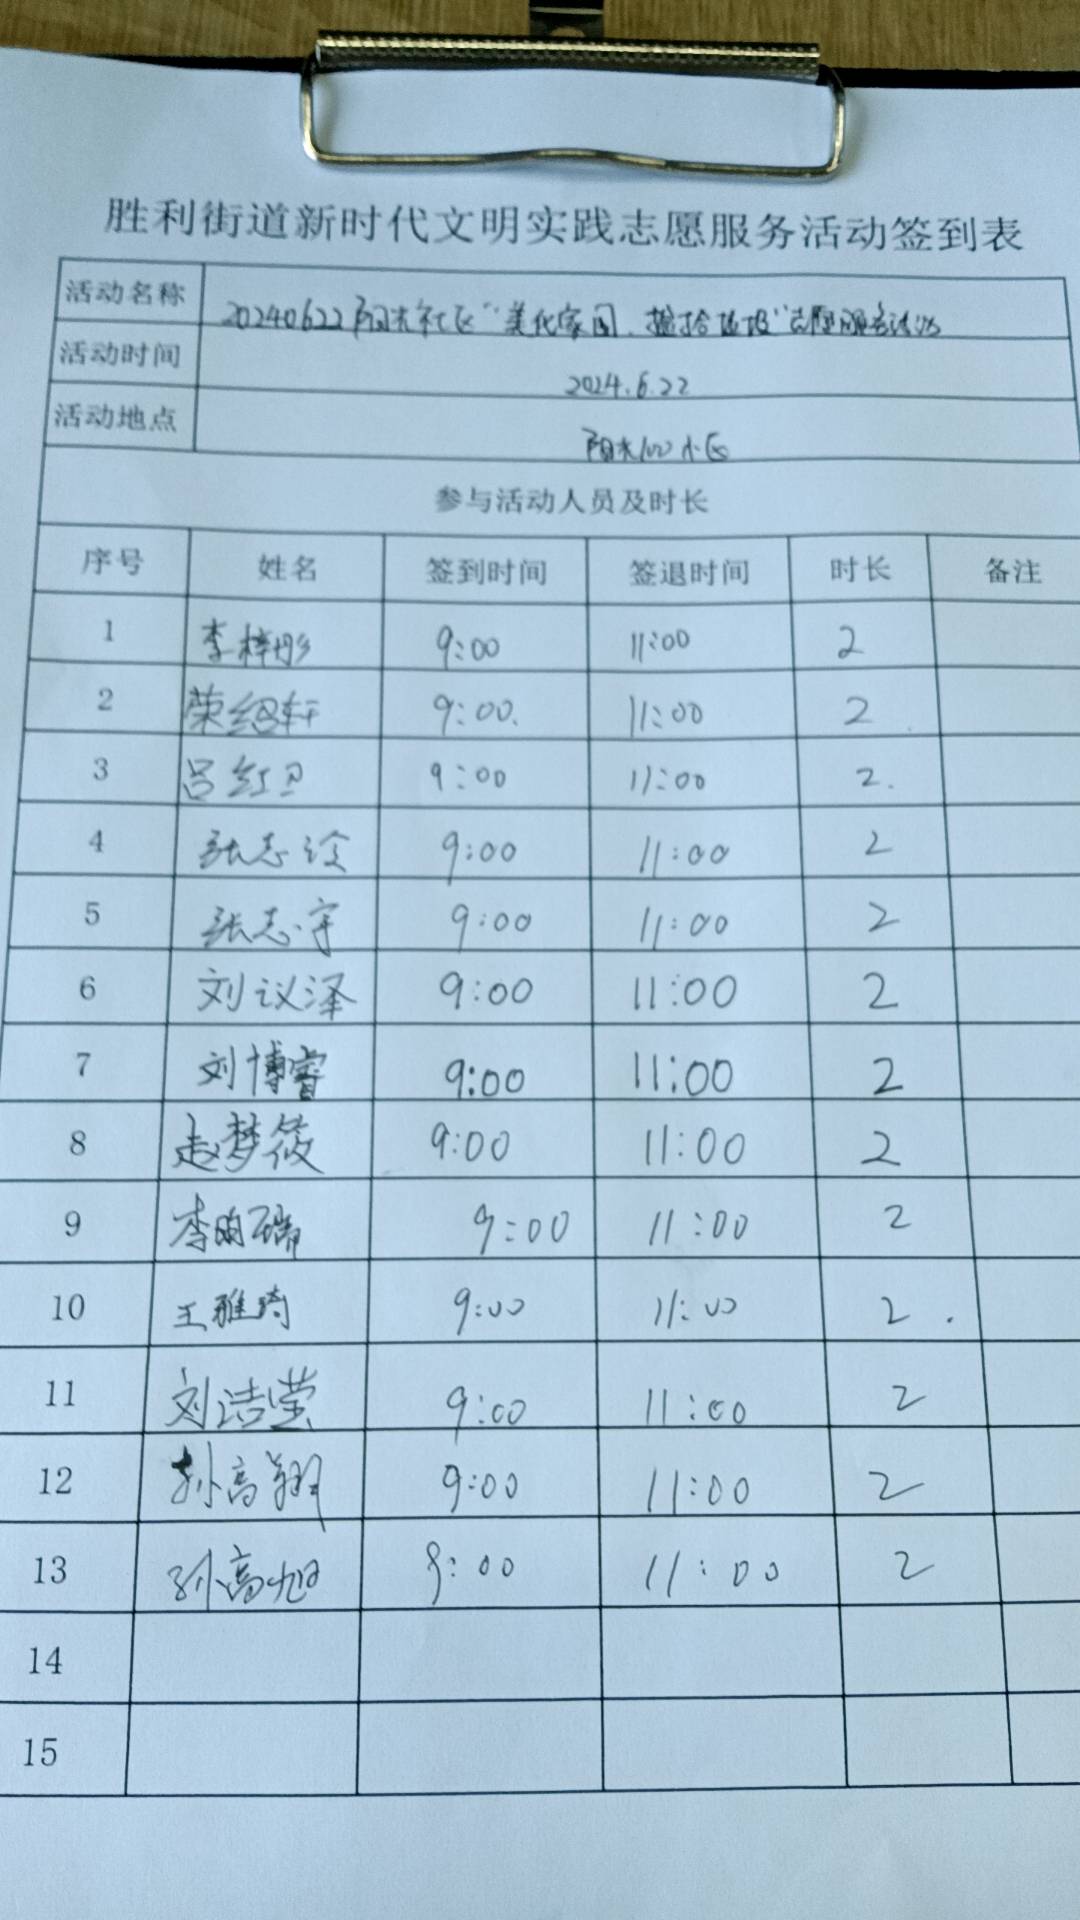 胜利街道新时代文明实践志愿服务活动签到表
活动名称 20240622阳光社区“美化家园、捡拾垃圾”志愿服务活动
活动时间 2024.6.22
活动地点 阳光100小区
参与活动人员及时长
序号 姓名 签到时间 签退时间 时长 备注
1 李梓彤 9:00 11:00 2
2 荣绍轩 9:00 11:00 2
3 吕红卫 9:00 11:00 2.
4 张志诠 9:00 11:00 2
5 张志宇 9:00 11:00 2
6 刘议泽 9:00 11:00 2
7 刘博睿 9:00 11:00 2
8 赵梦筱 9:00 11:00 2
9 李昀瑞 9:00 11:00 2
10 王雅琦 9:00 11:00 2
11 刘洁莹 9:00 11:00 2
12 孙高翔 9:00 11:00 2
13 孙高旭 9:00 11:00 2
14
15